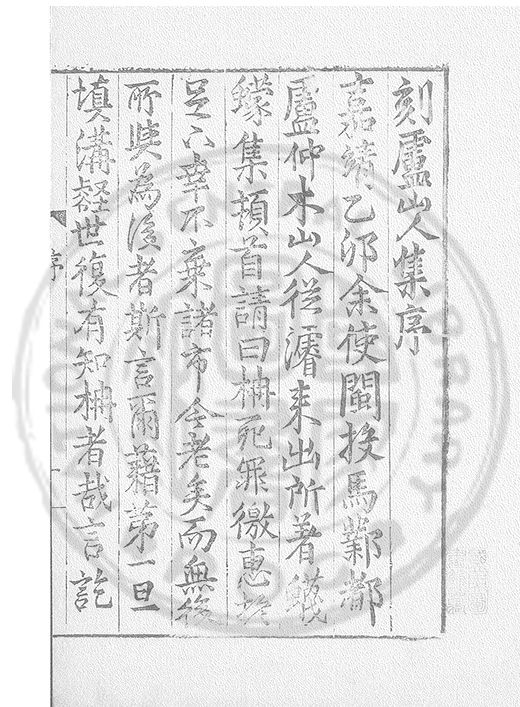 刻盧山人集序
嘉靖乙卯余使閩投馬鄴都
盧仲木山人從濬来出所著蠛
蠓集頓首請曰柟死罪徼惠於
足下幸不棄諸市今老矣而無後
所與為後者斯言爾藉第一旦
填溝壑世復有知柟者哉言訖
序